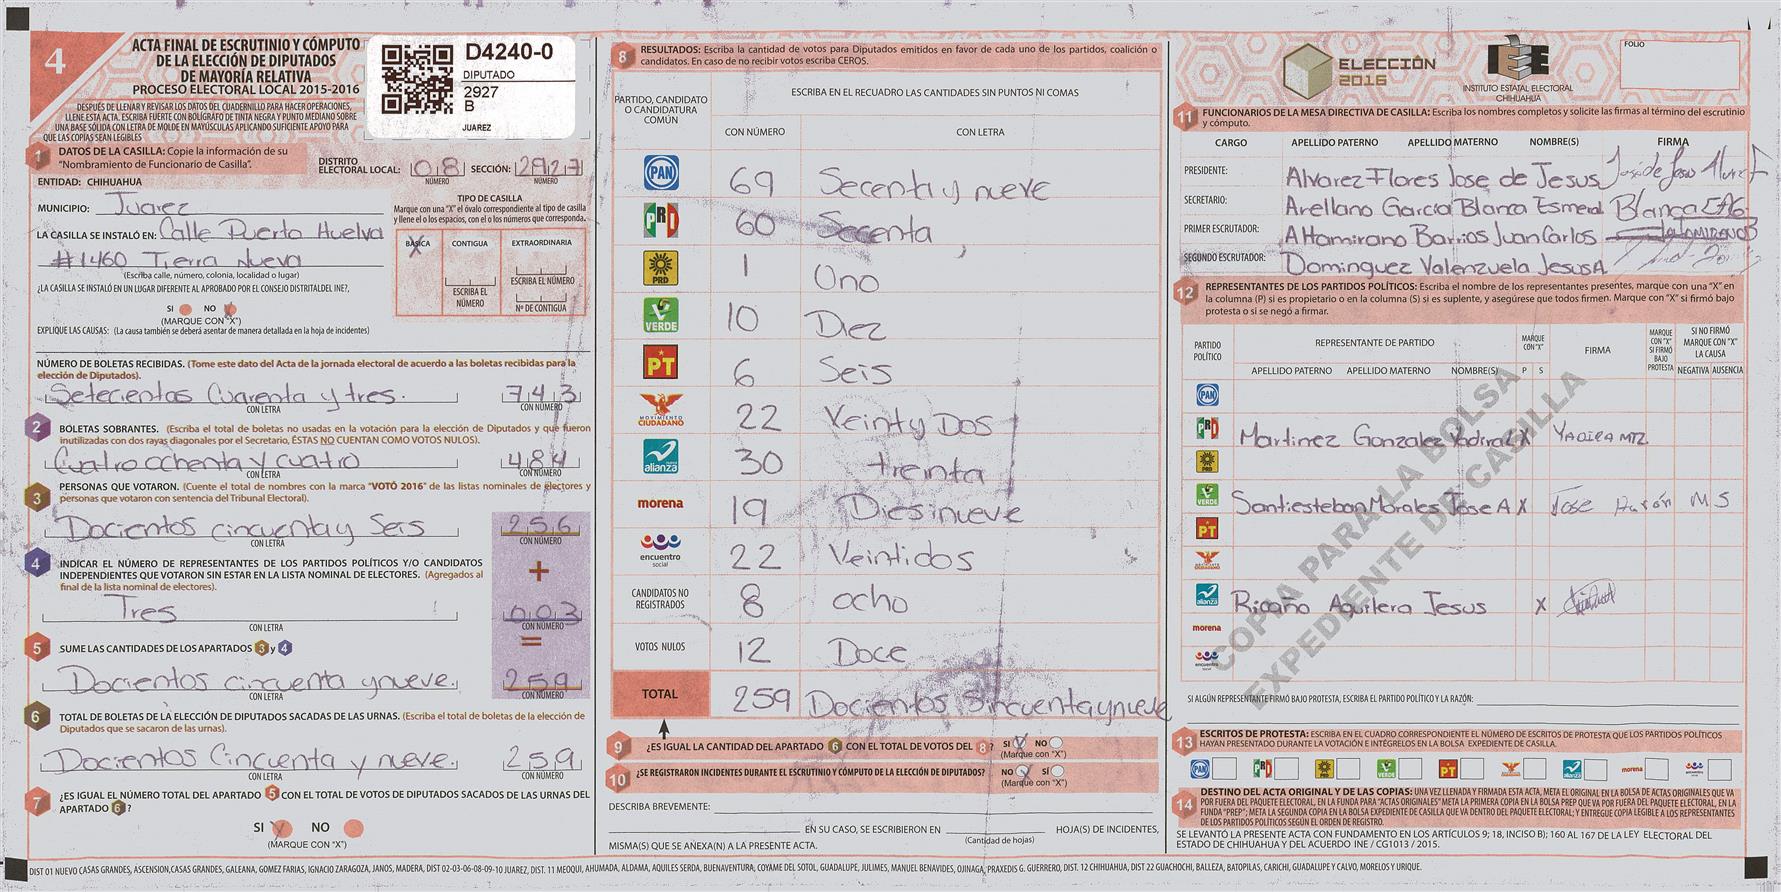 4
ACTA FINAL DE ESCRUTINIO Y CÓMPUTO
DE LA ELECCIÓN DE DIPUTADOS
DE MAYORÍA RELATIVA
PROCESO ELECTORAL LOCAL 2015-2016
DESPUÉS DE LLENAR Y REVISAR LOS DATOS DEL CUADERNILLO PARA HACER OPERACIONES,
LLENE ESTA ACTA. ESCRIBA FUERTE CON BOLÍGRAFO DE TINTA NEGRA Y PUNTO MEDIANO SOBRE
UNA BASE SÓLIDA CON LETRA DE MOLDE EN MAYÚSCULAS APLICANDO SUFICIENTE APOYO PARA
QUE LAS COPIAS SEAN LEGIBLES
D4240-0
DIPUTADO
2927
B
JUAREZ
1 DATOS DE LA CASILLA: Copie la información de su
"Nombramiento de Funcionario de Casilla".
DISTRITO ELECTORAL LOCAL: 08 SECCIÓN: 2927
NÚMERO NÚMERO
ENTIDAD: CHIHUAHUA
MUNICIPIO: Juarez
LA CASILLA SE INSTALÓ EN: Calle Puerto Huelva
#1460 Tierra Nueva
(Escriba calle, número, colonia, localidad o lugar)
¿LA CASILLA SE INSTALÓ EN UN LUGAR DIFERENTE AL APROBADO POR EL CONSEJO DISTRITAL DEL INE?,
SI NO X
(MARQUE CON "X")
EXPLIQUE LAS CAUSAS: (La causa también se deberá asentar de manera detallada en la hoja de incidentes)
TIPO DE CASILLA
Marque con una "X" el óvalo correspondiente al tipo de casilla
y llene el o los espacios, con el o los números que corresponda.
BÁSICA CONTIGUA EXTRAORDINARIA
X
ESCRIBA EL NÚMERO
ESCRIBA EL NÚMERO
Nº DE CONTIGUA
NÚMERO DE BOLETAS RECIBIDAS. (Tome este dato del Acta de la jornada electoral de acuerdo a las boletas recibidas para la
elección de Diputados).
Setecientos Cuarenta y tres. 743
CON LETRA CON NÚMERO
2 BOLETAS SOBRANTES. (Escriba el total de boletas no usadas en la votación para la elección de Diputados y que fueron
inutilizadas con dos rayas diagonales por el Secretario, ÉSTAS NO CUENTAN COMO VOTOS NULOS).
Cuatro ochenta y cuatro 484
CON LETRA CON NÚMERO
3 PERSONAS QUE VOTARON. (Cuente el total de nombres con la marca "VOTÓ 2016" de las listas nominales de electores y
personas que votaron con sentencia del Tribunal Electoral).
Docientos cincuenta y Seis 256
CON LETRA CON NÚMERO
+
4 INDICAR EL NÚMERO DE REPRESENTANTES DE LOS PARTIDOS POLÍTICOS Y/O CANDIDATOS
INDEPENDIENTES QUE VOTARON SIN ESTAR EN LA LISTA NOMINAL DE ELECTORES. (Agregados al
final de la lista nominal de electores).
Tres 003
CON LETRA CON NÚMERO
=
5 SUME LAS CANTIDADES DE LOS APARTADOS 3 y 4
Docientos cincuenta ynueve. 259
CON LETRA CON NÚMERO
6 TOTAL DE BOLETAS DE LA ELECCIÓN DE DIPUTADOS SACADAS DE LAS URNAS. (Escriba el total de boletas de la elección de
Diputados que se sacaron de las urnas).
Docientos Cincuenta y nueve. 259
CON LETRA CON NÚMERO
7 ¿ES IGUAL EL NÚMERO TOTAL DEL APARTADO 5 CON EL TOTAL DE VOTOS DE DIPUTADOS SACADOS DE LAS URNAS DEL
APARTADO 6?
SI X NO
(MARQUE CON "X")
8 RESULTADOS: Escriba la cantidad de votos para Diputados emitidos en favor de cada uno de los partidos, coalición o
candidatos. En caso de no recibir votos escriba CEROS.
PARTIDO, CANDIDATO O CANDIDATURA COMÚN
ESCRIBA EN EL RECUADRO LAS CANTIDADES SIN PUNTOS NI COMAS
CON NÚMERO CON LETRA
PAN 69 Secenta y nueve
PRI 60 Secenta
PRD 1 Uno
VERDE 10 Diez
PT 6 Seis
MOVIMIENTO CIUDADANO 22 Veinty Dos
alianza 30 treinta
morena 19 Diesinueve
encuentro social 22 Veintidos
CANDIDATOS NO REGISTRADOS 8 ocho
VOTOS NULOS 12 Doce
TOTAL 259 Docientos Sincuentaynueve
9 ¿ES IGUAL LA CANTIDAD DEL APARTADO 6 CON EL TOTAL DE VOTOS DEL 8? SI X NO
(Marque con "X")
10 ¿SE REGISTRARON INCIDENTES DURANTE EL ESCRUTINIO Y CÓMPUTO DE LA ELECCIÓN DE DIPUTADOS? NO X SÍ
(Marque con "X")
DESCRIBA BREVEMENTE:
EN SU CASO, SE ESCRIBIERON EN HOJA(S) DE INCIDENTES,
(Cantidad de hojas)
MISMA(S) QUE SE AÑEXA(N) A LA PRESENTE ACTA.
ELECCIÓN
2016
IEE
INSTITUTO ESTATAL ELECTORAL
CHIHUAHUA
FOLIO
11 FUNCIONARIOS DE LA MESA DIRECTIVA DE CASILLA: Escriba los nombres completos y solicite las firmas al término del escrutinio
y cómputo.
CARGO APELLIDO PATERNO APELLIDO MATERNO NOMBRE(S) FIRMA
PRESIDENTE: Alvarez Flores Jose de Jesus
SECRETARIO: Arellano Garcia Blanca Esmeral Blanca EAG
PRIMER ESCRUTADOR: Altamirano Barrios Juan Carlos
SEGUNDO ESCRUTADOR: Dominguez Valenzuela Jesus A.
12 REPRESENTANTES DE LOS PARTIDOS POLÍTICOS: Escriba el nombre de los representantes presentes, marque con una "X" en
la columna (P) si es propietario o en la columna (S) si es suplente, y asegúrese que todos firmen. Marque con "X" si firmó bajo
protesta o si se negó a firmar.
PARTIDO POLÍTICO REPRESENTANTE DE PARTIDO MARQUE CON "X" FIRMA MARQUE CON "X" SI FIRMÓ BAJO PROTESTA SI NO FIRMÓ MARQUE CON "X" LA CAUSA
APELLIDO PATERNO APELLIDO MATERNO NOMBRE(S) P S NEGATIVA AUSENCIA
PAN
PRI Martinez Gonzalez Yadira X YADIRA MTZ
PRD
VERDE Santiesteban Morales Jose A X Jose Aarón M S
PT
alianza Ricaño Aguilera Jesus X
morena
encuentro social
COPIA PARA LA BOLSA
EXPEDIENTE DE CASILLA
SI ALGÚN REPRESENTANTE FIRMÓ BAJO PROTESTA, ESCRIBA EL PARTIDO POLÍTICO Y LA RAZÓN:
13 ESCRITOS DE PROTESTA: ESCRIBA EN EL CUADRO CORRESPONDIENTE EL NÚMERO DE ESCRITOS DE PROTESTA QUE LOS PARTIDOS POLÍTICOS
HAYAN PRESENTADO DURANTE LA VOTACIÓN E INTÉGRELOS EN LA BOLSA EXPEDIENTE DE CASILLA.
PAN PRI PRD VERDE PT alianza morena
14 DESTINO DEL ACTA ORIGINAL Y DE LAS COPIAS: UNA VEZ LLENADA Y FIRMADA ESTA ACTA, META EL ORIGINAL EN LA BOLSA DE ACTAS ORIGINALES QUE VA
POR FUERA DEL PAQUETE ELECTORAL, EN LA FUNDA PARA "ACTAS ORIGINALES" META LA PRIMERA COPIA EN LA BOLSA PREP QUE VA POR FUERA DEL PAQUETE ELECTORAL, EN LA
FUNDA "PREP"; META LA SEGUNDA COPIA EN LA BOLSA EXPEDIENTE DE CASILLA QUE VA DENTRO DEL PAQUETE ELECTORAL; Y ENTREGUE COPIA LEGIBLE A LOS REPRESENTANTES
DE LOS PARTIDOS POLÍTICOS SEGÚN EL ORDEN DE REGISTRO.
SE LEVANTÓ LA PRESENTE ACTA CON FUNDAMENTO EN LOS ARTÍCULOS 9; 18, INCISO B); 160 AL 167 DE LA LEY ELECTORAL DEL
ESTADO DE CHIHUAHUA Y DEL ACUERDO INE / CG1013 / 2015.
DIST 01 NUEVO CASAS GRANDES, ASCENSION,CASAS GRANDES, GALEANA, GOMEZ FARIAS, IGNACIO ZARAGOZA, JANOS, MADERA, DIST 02-03-06-08-09-10 JUAREZ, DIST. 11 MEOQUI, AHUMADA, ALDAMA, AQUILES SERDA, BUENAVENTURA, COYAME DEL SOTOL, GUADALUPE, JULIMES, MANUEL BENAVIDES, OJINAGA, PRAXEDIS G. GUERRERO, DIST. 12 CHIHUAHUA, DIST 22 GUACHOCHI, BALLEZA, BATOPILAS, CARICHI, GUADALUPE Y CALVO, MORELOS Y URIQUE.